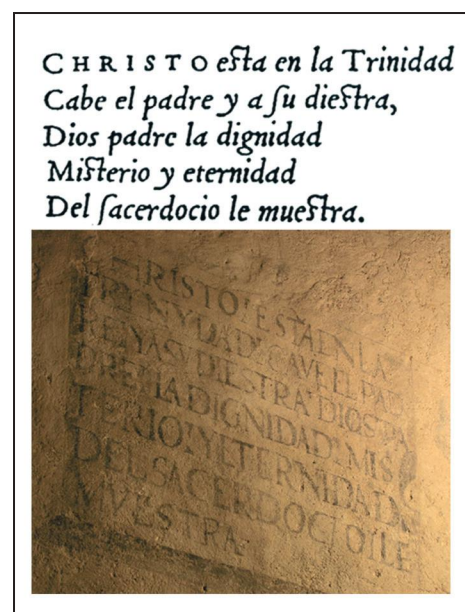 CHRISTO eſta en la Trinidad
Cabe el padre y a ſu dieſtra,
Dios padre la dignidad
Miſterio y eternidad
Del ſacerdocio le mueſtra.
CHRISTO! ESTA EN LA
TRYNYDAD! CAVE EL PAD
RE! Y A SV DIESTRA! DIOS PA
DRE! LA DIGNIDAD! MIS
TERIO! Y ETERNIDAD
DEL SACERDOCIO! LE
MVESTRA